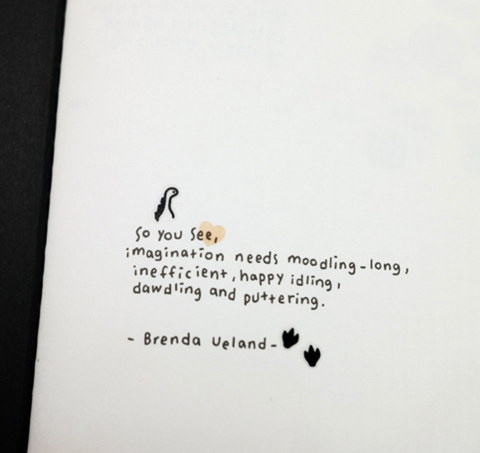 So you see,
imagination needs moodling-long,
inefficient, happy idling,
dawdling and puttering.
- Brenda Ueland-